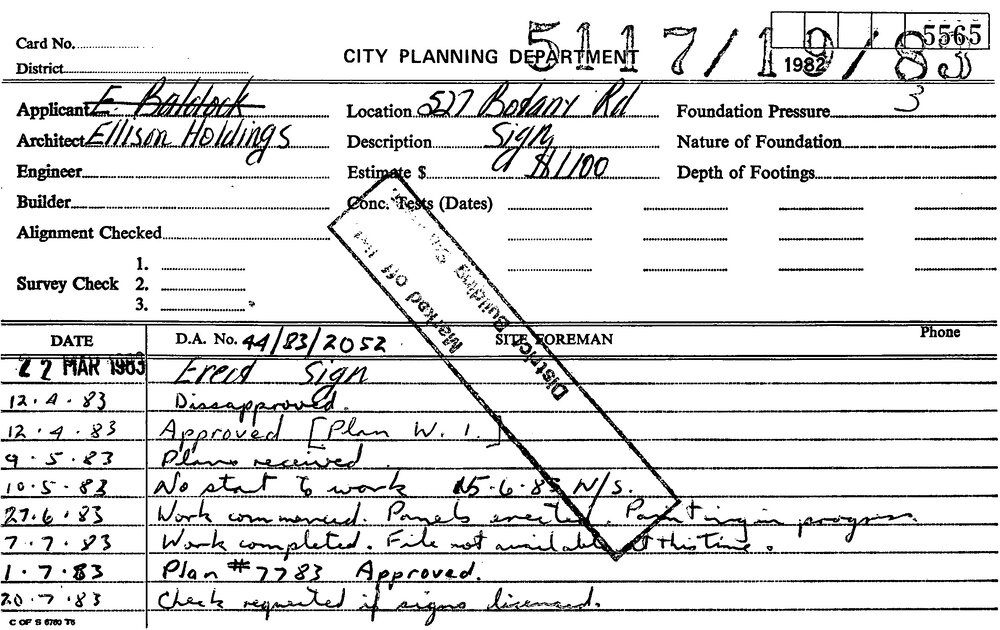 5117/19/83
5565
Card No.
CITY PLANNING DEPARTMENT
1982
District
Applicant E. Baldock
Location 527 Botany Rd
Foundation Pressure 3
Architect Ellison Holdings
Description Sign
Nature of Foundation
Engineer
Estimate $ $1100
Depth of Footings
Builder
Conc. Tests (Dates)
Alignment Checked
1.
Survey Check 2.
3.
Marked off list
District Building
DATE
D.A. No. 44/83/2052
SITE FOREMAN
Phone
22 MAR 1983 Erect Sign
12.4.83 Dissapproved.
12.4.83 Approved [Plan W. 1.]
9.5.83 Plans received
10.5.83 No start to work 15.6.83 N/S.
27.6.83 Work commenced. Panels erected. Painting in progress.
7.7.83 Work completed. File not available at this time.
1.7.83 Plan #7783 Approved.
20.7.83 Check requested if signs licensed.
C OF S 6760 T6